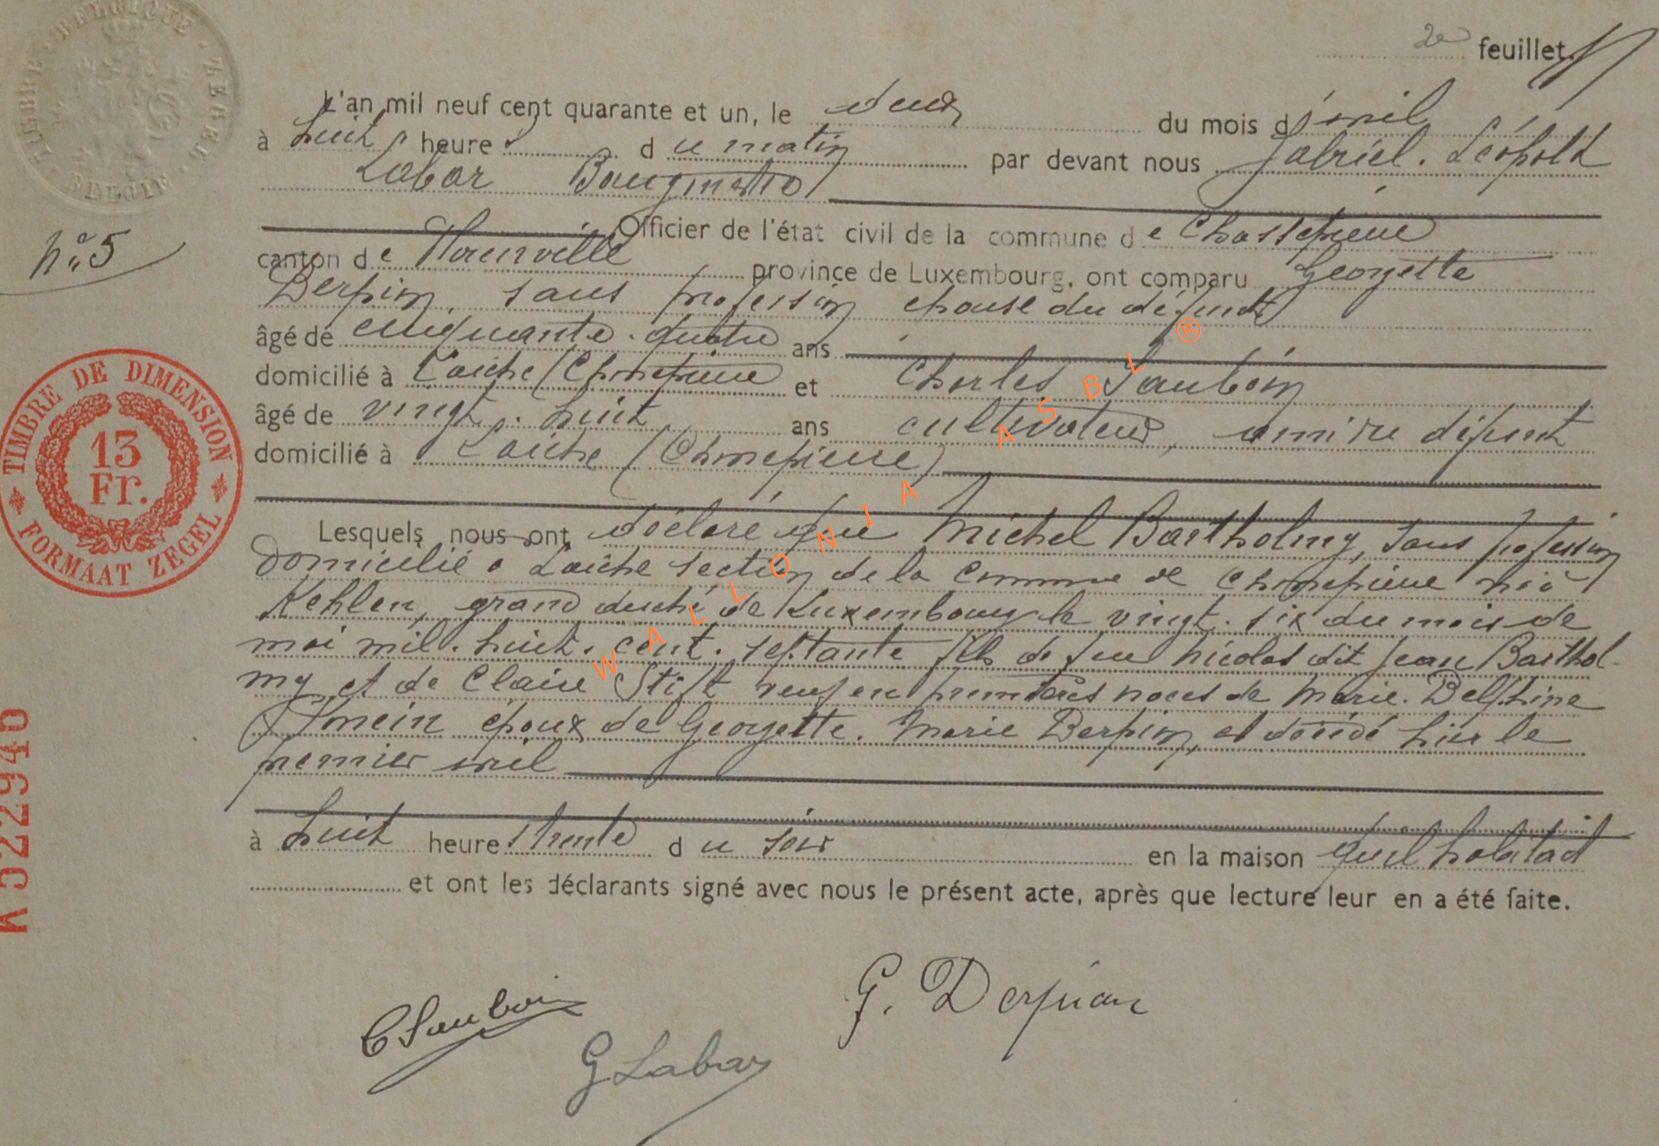 BELGIQUE · ZEGEL · BELGIË · TIMBRE
2e feuillet.
L'an mil neuf cent quarante et un, le deux du mois d'avril
à huit heures du matin par devant nous Gabriel. Léopold
Labar Bourgmestre
Officier de l'état civil de la commune de Chassepierre
N° 5
canton de Florenville province de Luxembourg, ont comparu Georgette
sans profession épouse du défunt
âgé de cinquante-quatre ans
domicilié à Laiche (Chassepierre et Charles
âgé de vingt. huit ans cultivateur, ami du défunt
domicilié à Laiche (Chassepierre)
TIMBRE DE DIMENSION
13
Fr.
FORMAAT ZEGEL
Lesquels nous ont déclaré que Michel Bartholmy, sans profession
domicilié à Laiche section de la commune de Chassepierre né à
Kehlen, grand duché de Luxembourg le vingt. six du mois de
mai mil. huit. cent. septante fils de feu Nicolas dit Jean Barthol-
my et de Claire Stift veuf en premières noces de Marie. Delphine
époux de Georgette. Marie est décédé hier le
premier avril
à huit heures trente du soir en la maison qu'il habitait
et ont les déclarants signé avec nous le présent acte, après que lecture leur en a été faite.
K522940
G Labar
WALLONIA ASBL ®